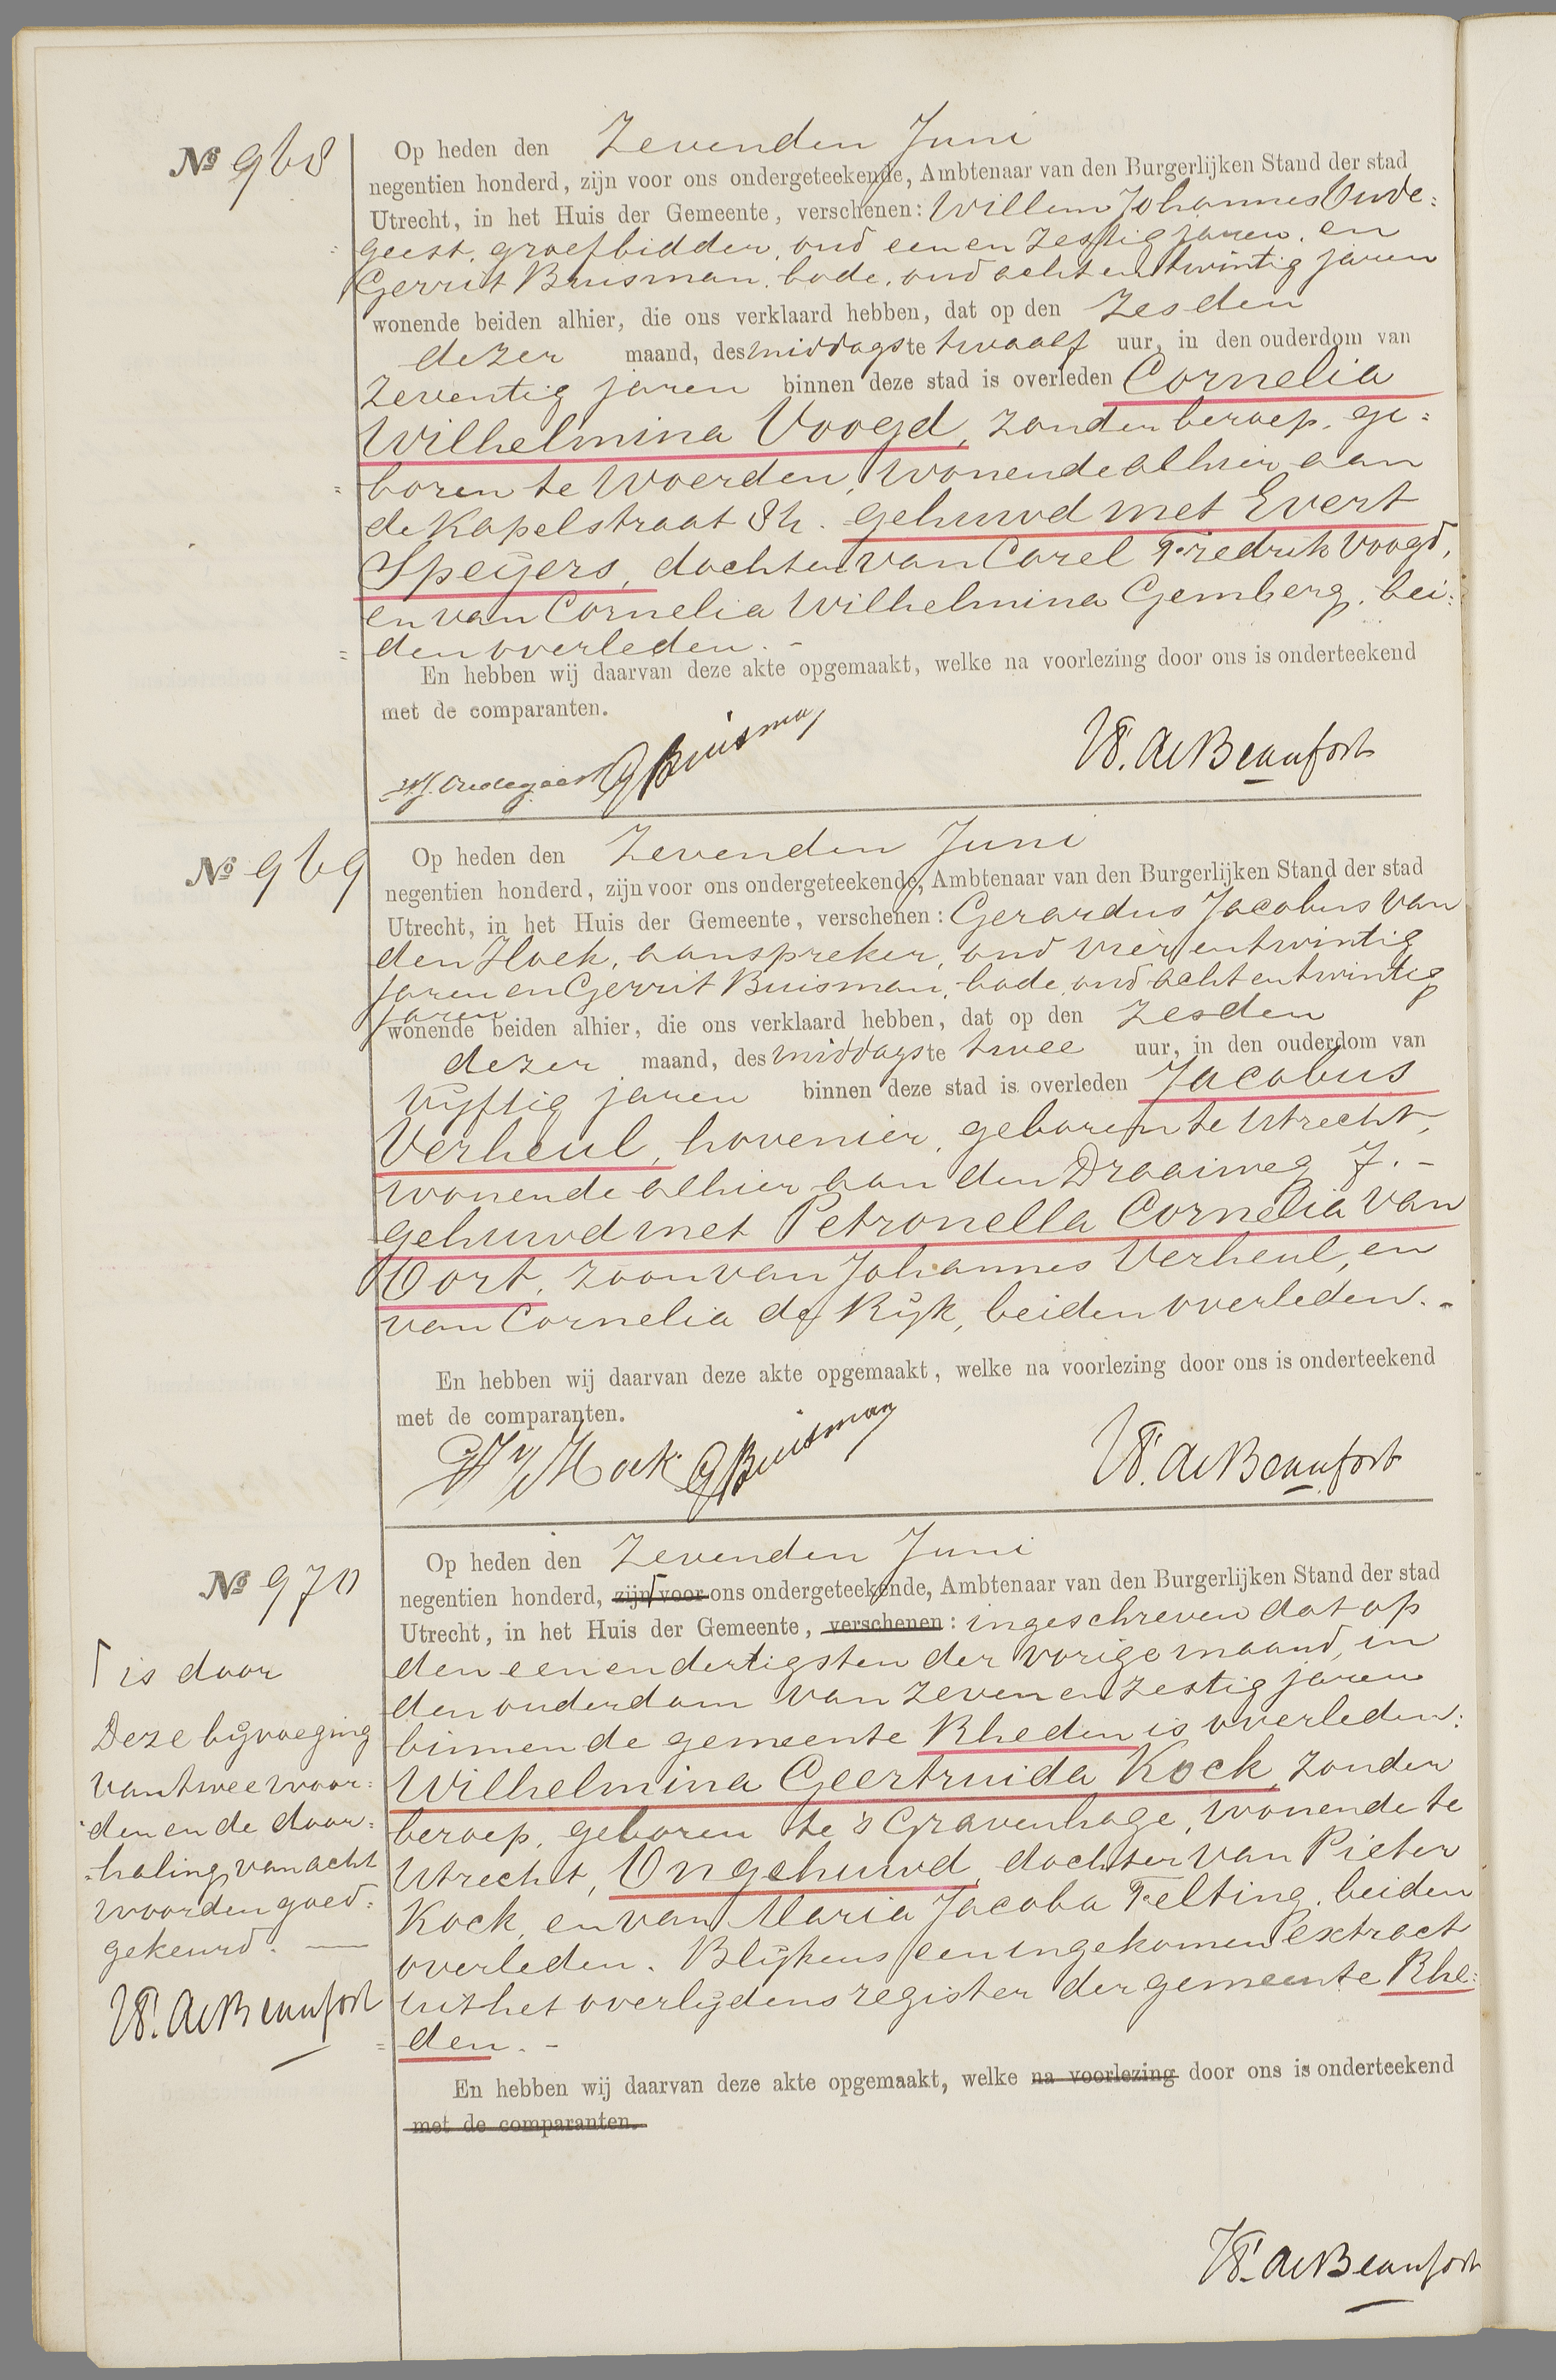 No 968
Op heden den Zevenden Juni
negentien honderd, zijn voor ons ondergeteekende, Ambtenaar van den Burgerlijken Stand der stad
Utrecht, in het Huis der Gemeente, verschenen: Willem Johannes Oude=
=geest, groefbidder, oud een en zestig jaren, en
Gerrit Buisman, bode, oud acht en twintig jaren
wonende beiden alhier, die ons verklaard hebben, dat op den Zesden
dezer maand, des middags te twaalf uur, in den ouderdom van
Zeventig jaren binnen deze stad is overleden Cornelia
Wilhelmina Voogd, zonder beroep, ge=
=boren te Woerden, wonende alhier aan
de Kapelstraat 8h. gehuwd met Evert
Speijers, dochter van Carel Fredrik Voogd,
en van Cornelia Wilhelmina Gemberg, bei=
=den overleden. -
En hebben wij daarvan deze akte opgemaakt, welke na voorlezing door ons is onderteekend
met de comparanten.
WJ. Oudegeest GBuisman W. de Beaufort
No 969
Op heden den Zevenden Juni
negentien honderd, zijn voor ons ondergeteekende, Ambtenaar van den Burgerlijken Stand der stad
Utrecht, in het Huis der Gemeente, verschenen: Gerardus Jacobus van
den Hoek, aanspreker, oud vier en twintig
jaren en Gerrit Buisman, bode, oud acht en twintig
jaren
wonende beiden alhier, die ons verklaard hebben, dat op den Zesden
dezer maand, des middags te twee uur, in den ouderdom van
Vijftig jaren binnen deze stad is overleden Jacobus
Verheul, hovenier, geboren te Utrecht,
wonende alhier aan den Draaiweg 7. -
gehuwd met Petronella Cornelia van
Oort, zoon van Johannes Verheul, en
van Cornelia de Rijk, beiden overleden. -
En hebben wij daarvan deze akte opgemaakt, welke na voorlezing door ons is onderteekend
met de comparanten.
v/d Hoek GBuisman W. de Beaufort
No 970
Op heden den Zevenden Juni
negentien honderd, zijn voor ons ondergeteekende, Ambtenaar van den Burgerlijken Stand der stad
Utrecht, in het Huis der Gemeente, verschenen: ingeschreven dat op
den een en dertigsten der vorige maand, in
den ouderdom van zeven en zestig jaren
binnen de gemeente Rheden is overleden:
Wilhelmina Geertruida Kock, zonder
beroep, geboren te 's Gravenhage, wonende te
Utrecht, Ongehuwd, dochter van Pieter
Kock, en van Maria Jacoba Felting, beiden
overleden. Blijkens een ingekomen extract
uit het overlijdens register der gemeente Rhe=
=den. -
En hebben wij daarvan deze akte opgemaakt, welke na voorlezing door ons is onderteekend
met de comparanten.
W. de Beaufort
Γ is door
Deze bijvoeging
van twee woor=
den en de door=
=haling van acht
woorden goed=
gekeurd. —
W. de Beaufort